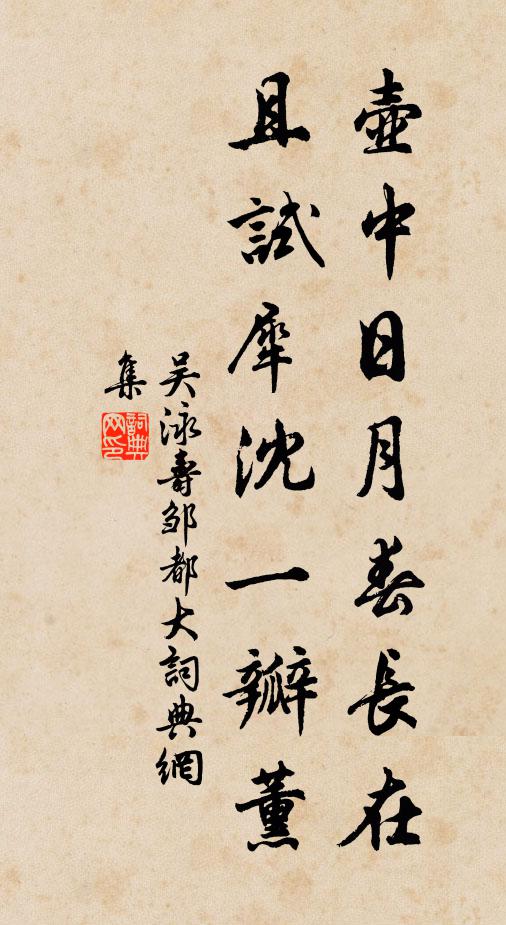 壺中日月春長在
且試犀沈一瓣薰
吴泳壽邹都大詞典網
集
詞典
网印